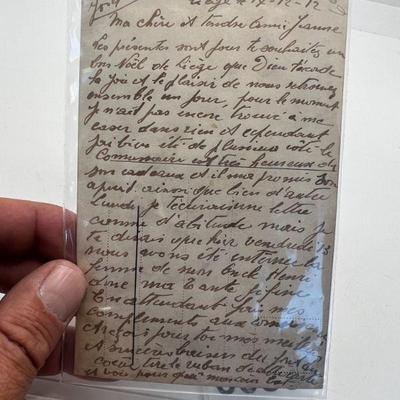 Liège le 14-12-12
Ma chère et tendre amie Jeanne
Les présentes sont pour te souhaiter un
bon Noël de Liège que Dieu t'accorde
la joie et le plaisir de nous retrouver
ensemble un jour, pour le moment
je n'ait pas encore trouvé à me
caser dans rien et cependant
j'ai bien été de plusieurs côté le
Commissaire est très heureux de
son cadeaux et il m'a promis son
apuit ainsi que bien d'autre
Lundi je t'écrirai une lettre
comme d'abitude mais je
te dirais que hier vendredi 13
nous avons été enterré la
femme de mon oncle Henri
donc ma Tante Fifine
En attendant fais mes
compliments aux
reçois pour toi mes meill
et sincères baisers du fond du
coeur tire le ruban de
et vois pour qui mon coeur bat